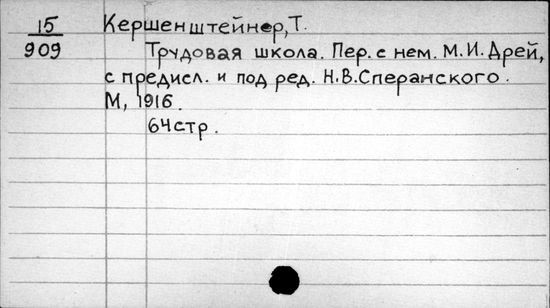 15
909
Кершенштейнер, Т.
Трудовая школа. Пер. с нем. М.И. Дрей,
с предисл. и под ред. Н.В. Сперанского.
М, 1916.
64 стр.